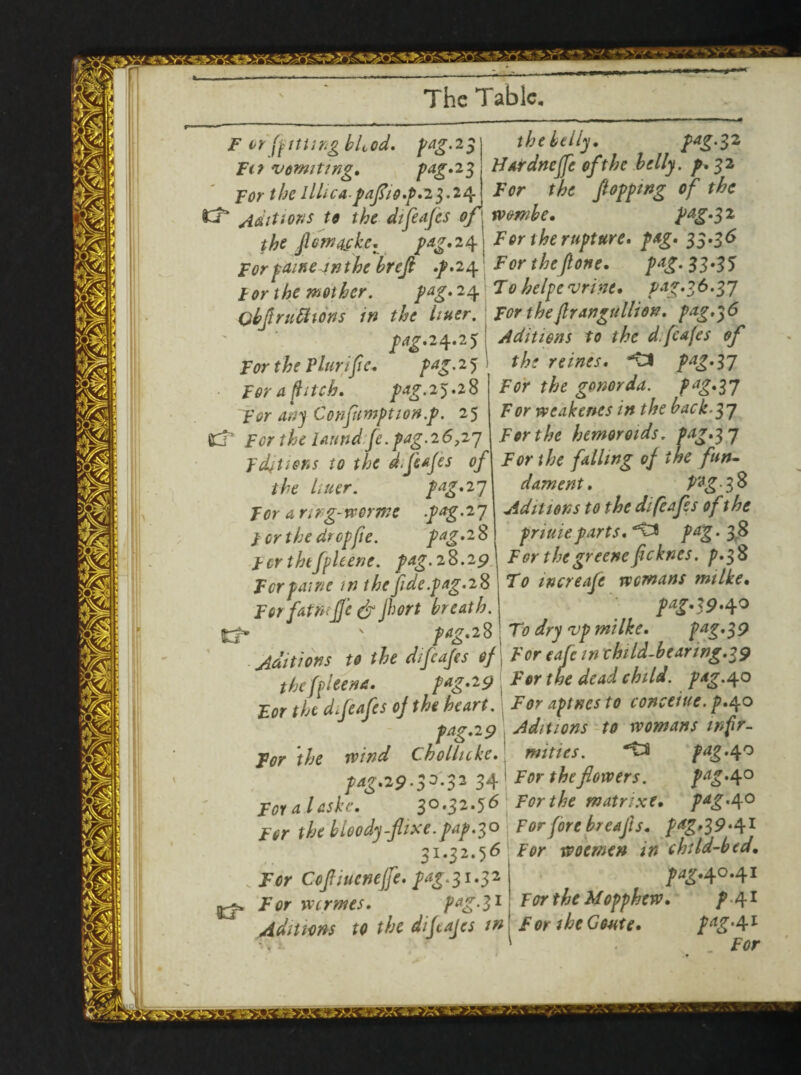 The Table.
For spitting blood. pag.23
For vomiting. pag.23
For the Illica-passio.p.23.24
☞ Aditions to the diseases of
the stomacke. pag.24
For paine in the brest .p.24
For the mother. pag.24
Obstructions in the liuer.
pag.24.25
For the Plurisie. pag.25
For a stitch. pag.25.28
For any Consumption.p. 25
☞ For the iaundise.pag.26,27
Editions to the diseases of
the liuer. pag.27
For a ring-worme .pag.27
For the dropsie. pag.28
For the spleene. pag.28.29
For paine in the side.pag.28
For fatnesse & short breath.
☞ pag.28
Aditions to the diseases of
the spleena. pag.29
For the diseases of the heart.
pag.29
For the wind Chollicke.
pag.29.30.32 34
For a laske. 30.32.56
For the bloody-flixe.pap.30
31.32.56
For Costiuenesse. pag.31.32
☞ For wormes. pag.31
Aditions to the diseases in
the belly. pag.32
Hardnesse of the belly. p.32
For the stopping of the
wombe. pag.32
For the rupture. pag. 33.36
For the stone. pag.33.35
To helpe vrine. pag.36.37
For the strangullion. pag.36
Aditions to the diseases of
the reines. ☜ pag.37
For the gonorda. pag.37
For weakenes in the back.37
For the hemoroids. pag.37
For the falling of the fun-
dament. pag.38
Aditions to the diseases of the
priuie parts. ☜ pag. 38
For the greene sicknes. p.38
To increase womans milke.
pag.39.40
To dry vp milke. pag.39
For ease in child-bearing.39
For the dead child. pag.40
For aptnes to conceiue. p.40
Aditions to womans infir-
mities. ☜ pag.40
For the flowers. pag.40
For the matrixe. pag.40
For sore breasts. pag.39.41
For woemen in child-bed.
pag.40.41
For the Mopphew. p.41
For the Goute. pag.41
For